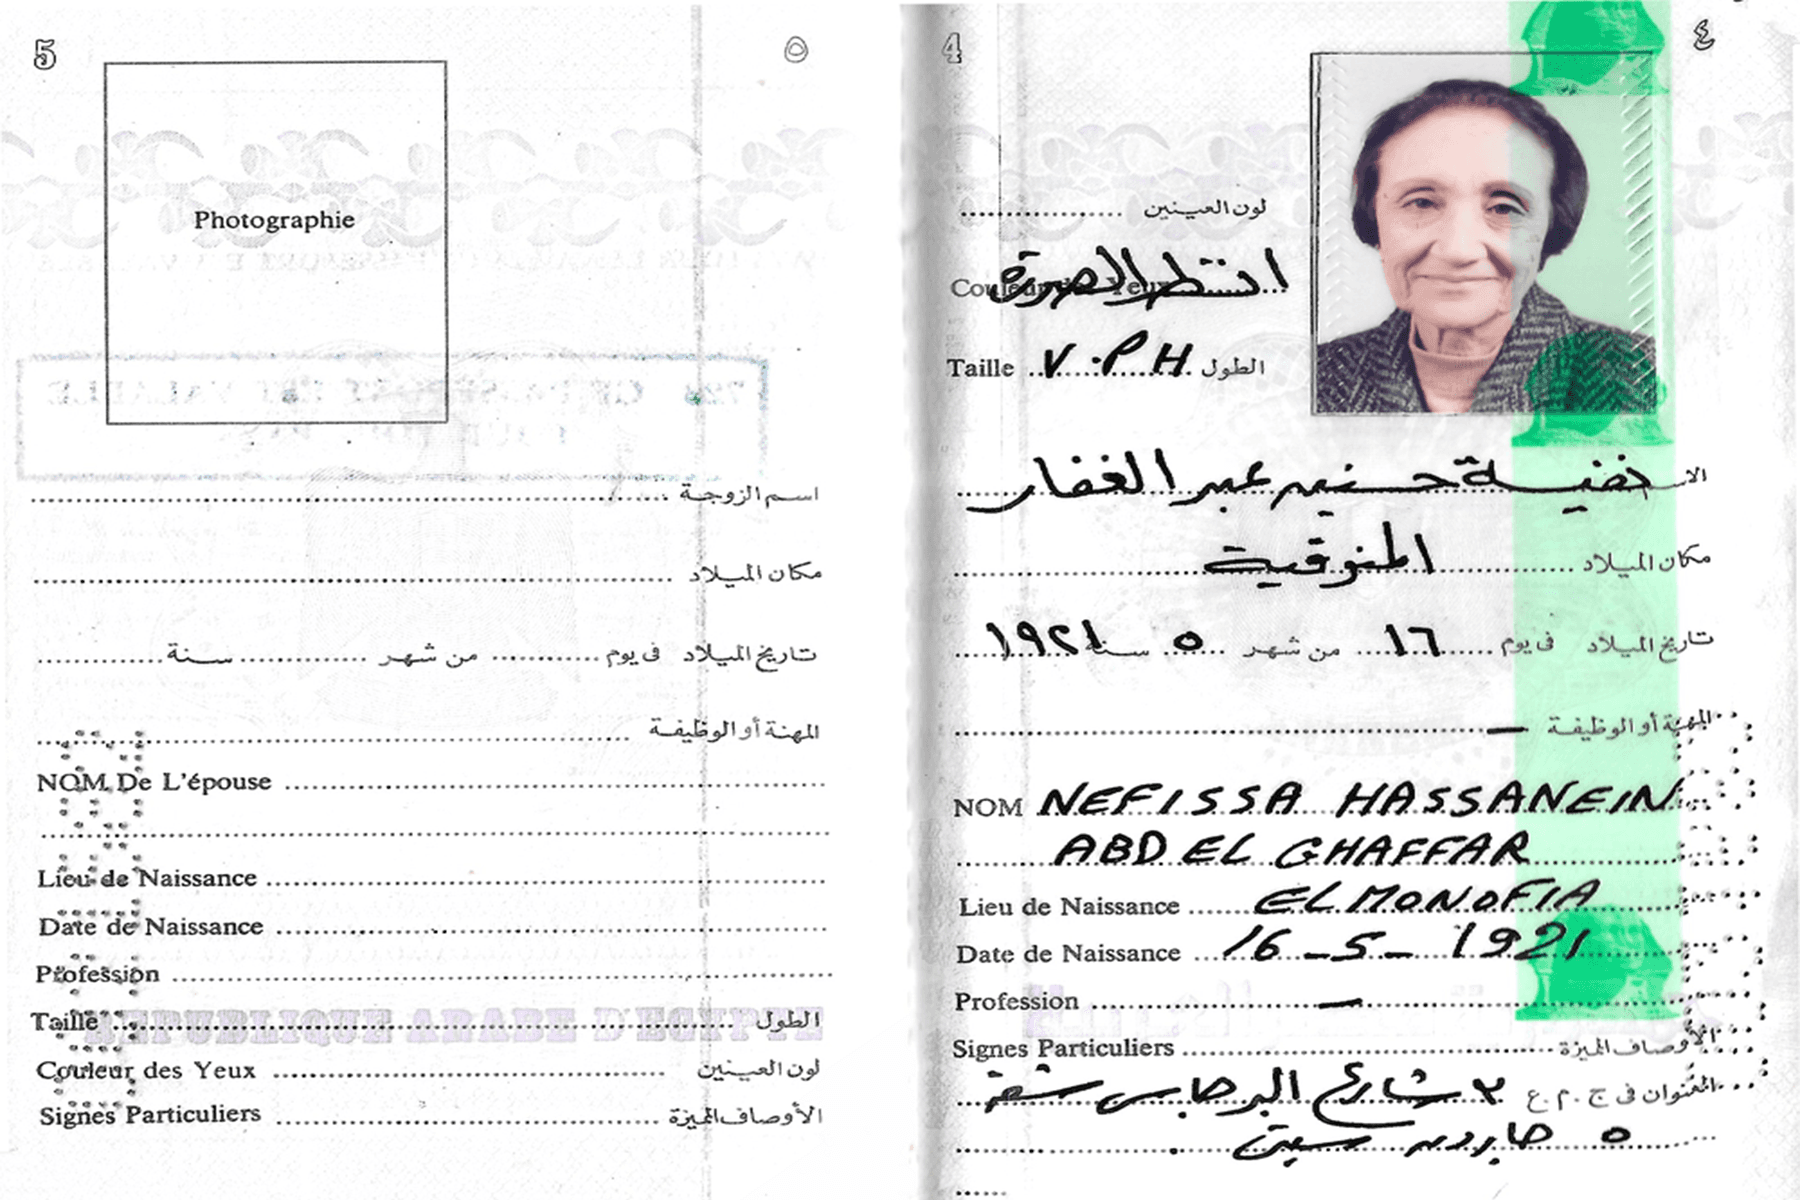 5 ٥
Photographie
اسم الزوجة
مكان الميلاد
تاريخ الميلاد فى يوم من شهر سنة
المهنة أو الوظيفة
NOM De L'épouse
Lieu de Naissance
Date de Naissance
Profession
Taille الطول
REPUBLIQUE ARABE D'EGYPTE
Couleur des Yeux لون العينين
Signes Particuliers الأوصاف المميزة
4 ٤
لون العينين
Couleur des Yeux انظر الصورة
Taille V.P.H الطول
نفيسة حسنين عبد الغفار
مكان الميلاد المنوفية
تاريخ الميلاد فى يوم ١٦ من شهر ٥ سنة ١٩٢١
المهنة أو الوظيفة —
NOM NEFISSA HASSANEIN
ABD EL GHAFFAR
Lieu de Naissance EL MONOFIA
Date de Naissance 16 - 5 - 1921
Profession —
Signes Particuliers الأوصاف المميزة
العنوان فى ج . م . ع ٣ شارع البرجاس شقة
٥ جاردن سيتى